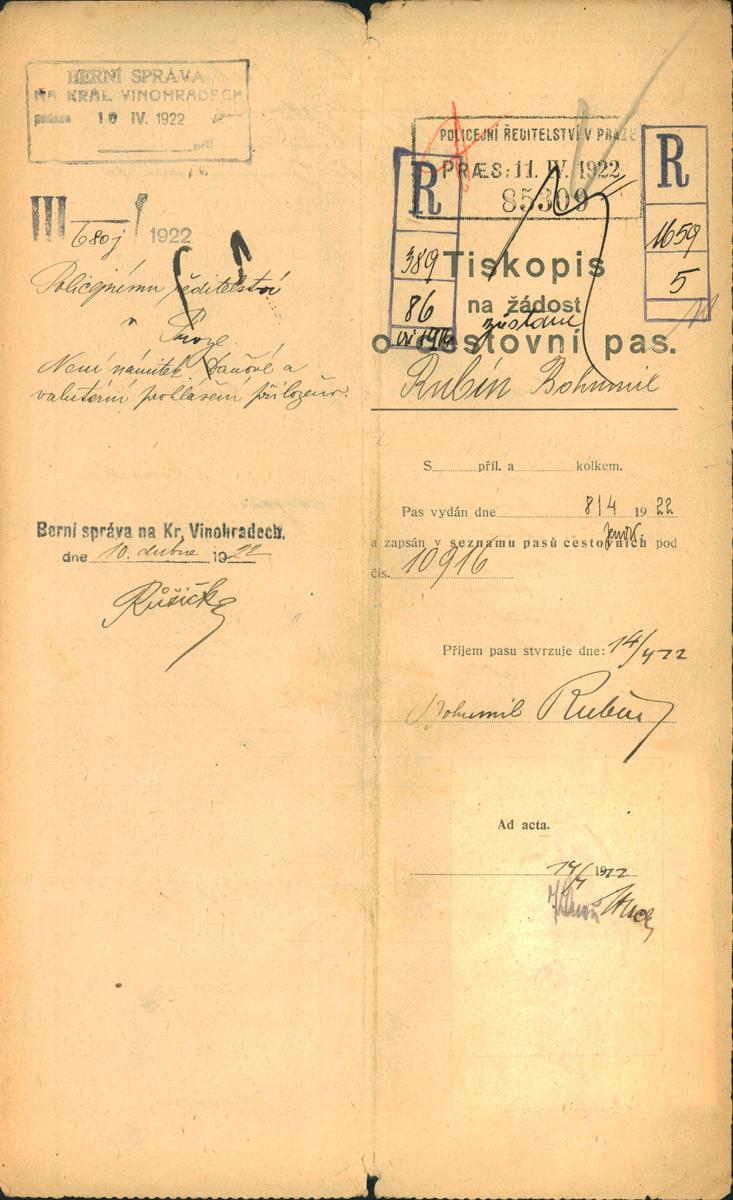 BERNÍ SPRÁVA
NA KRÁL. VINOHRADECH
podáno 10 IV. 1922
příl.
III 680j 1922
Policejnímu ředitelství
v Praze.
Není námitek, daňové a
valutární prohlášení přiloženo.
Berní správa na Kr. Vinohradech.
dne 10. dubna 1922
Růžička
POLICEJNÍ ŘEDITELSTVÍ V PRAZE
PRÆS: 11. IV. 1922
85309
R
389
86
R
1659
5
Tiskopis
na žádost
o cestovní pas.
Rubín Bohumil
S příl. a kolkem.
Pas vydán dne 8/4 1922
a zapsán v seznamu pasů cestovních pod
čís. 10916
Příjem pasu stvrzuje dne: 14/4 22
Bohumil Rubín
Ad acta.
14/4 1922